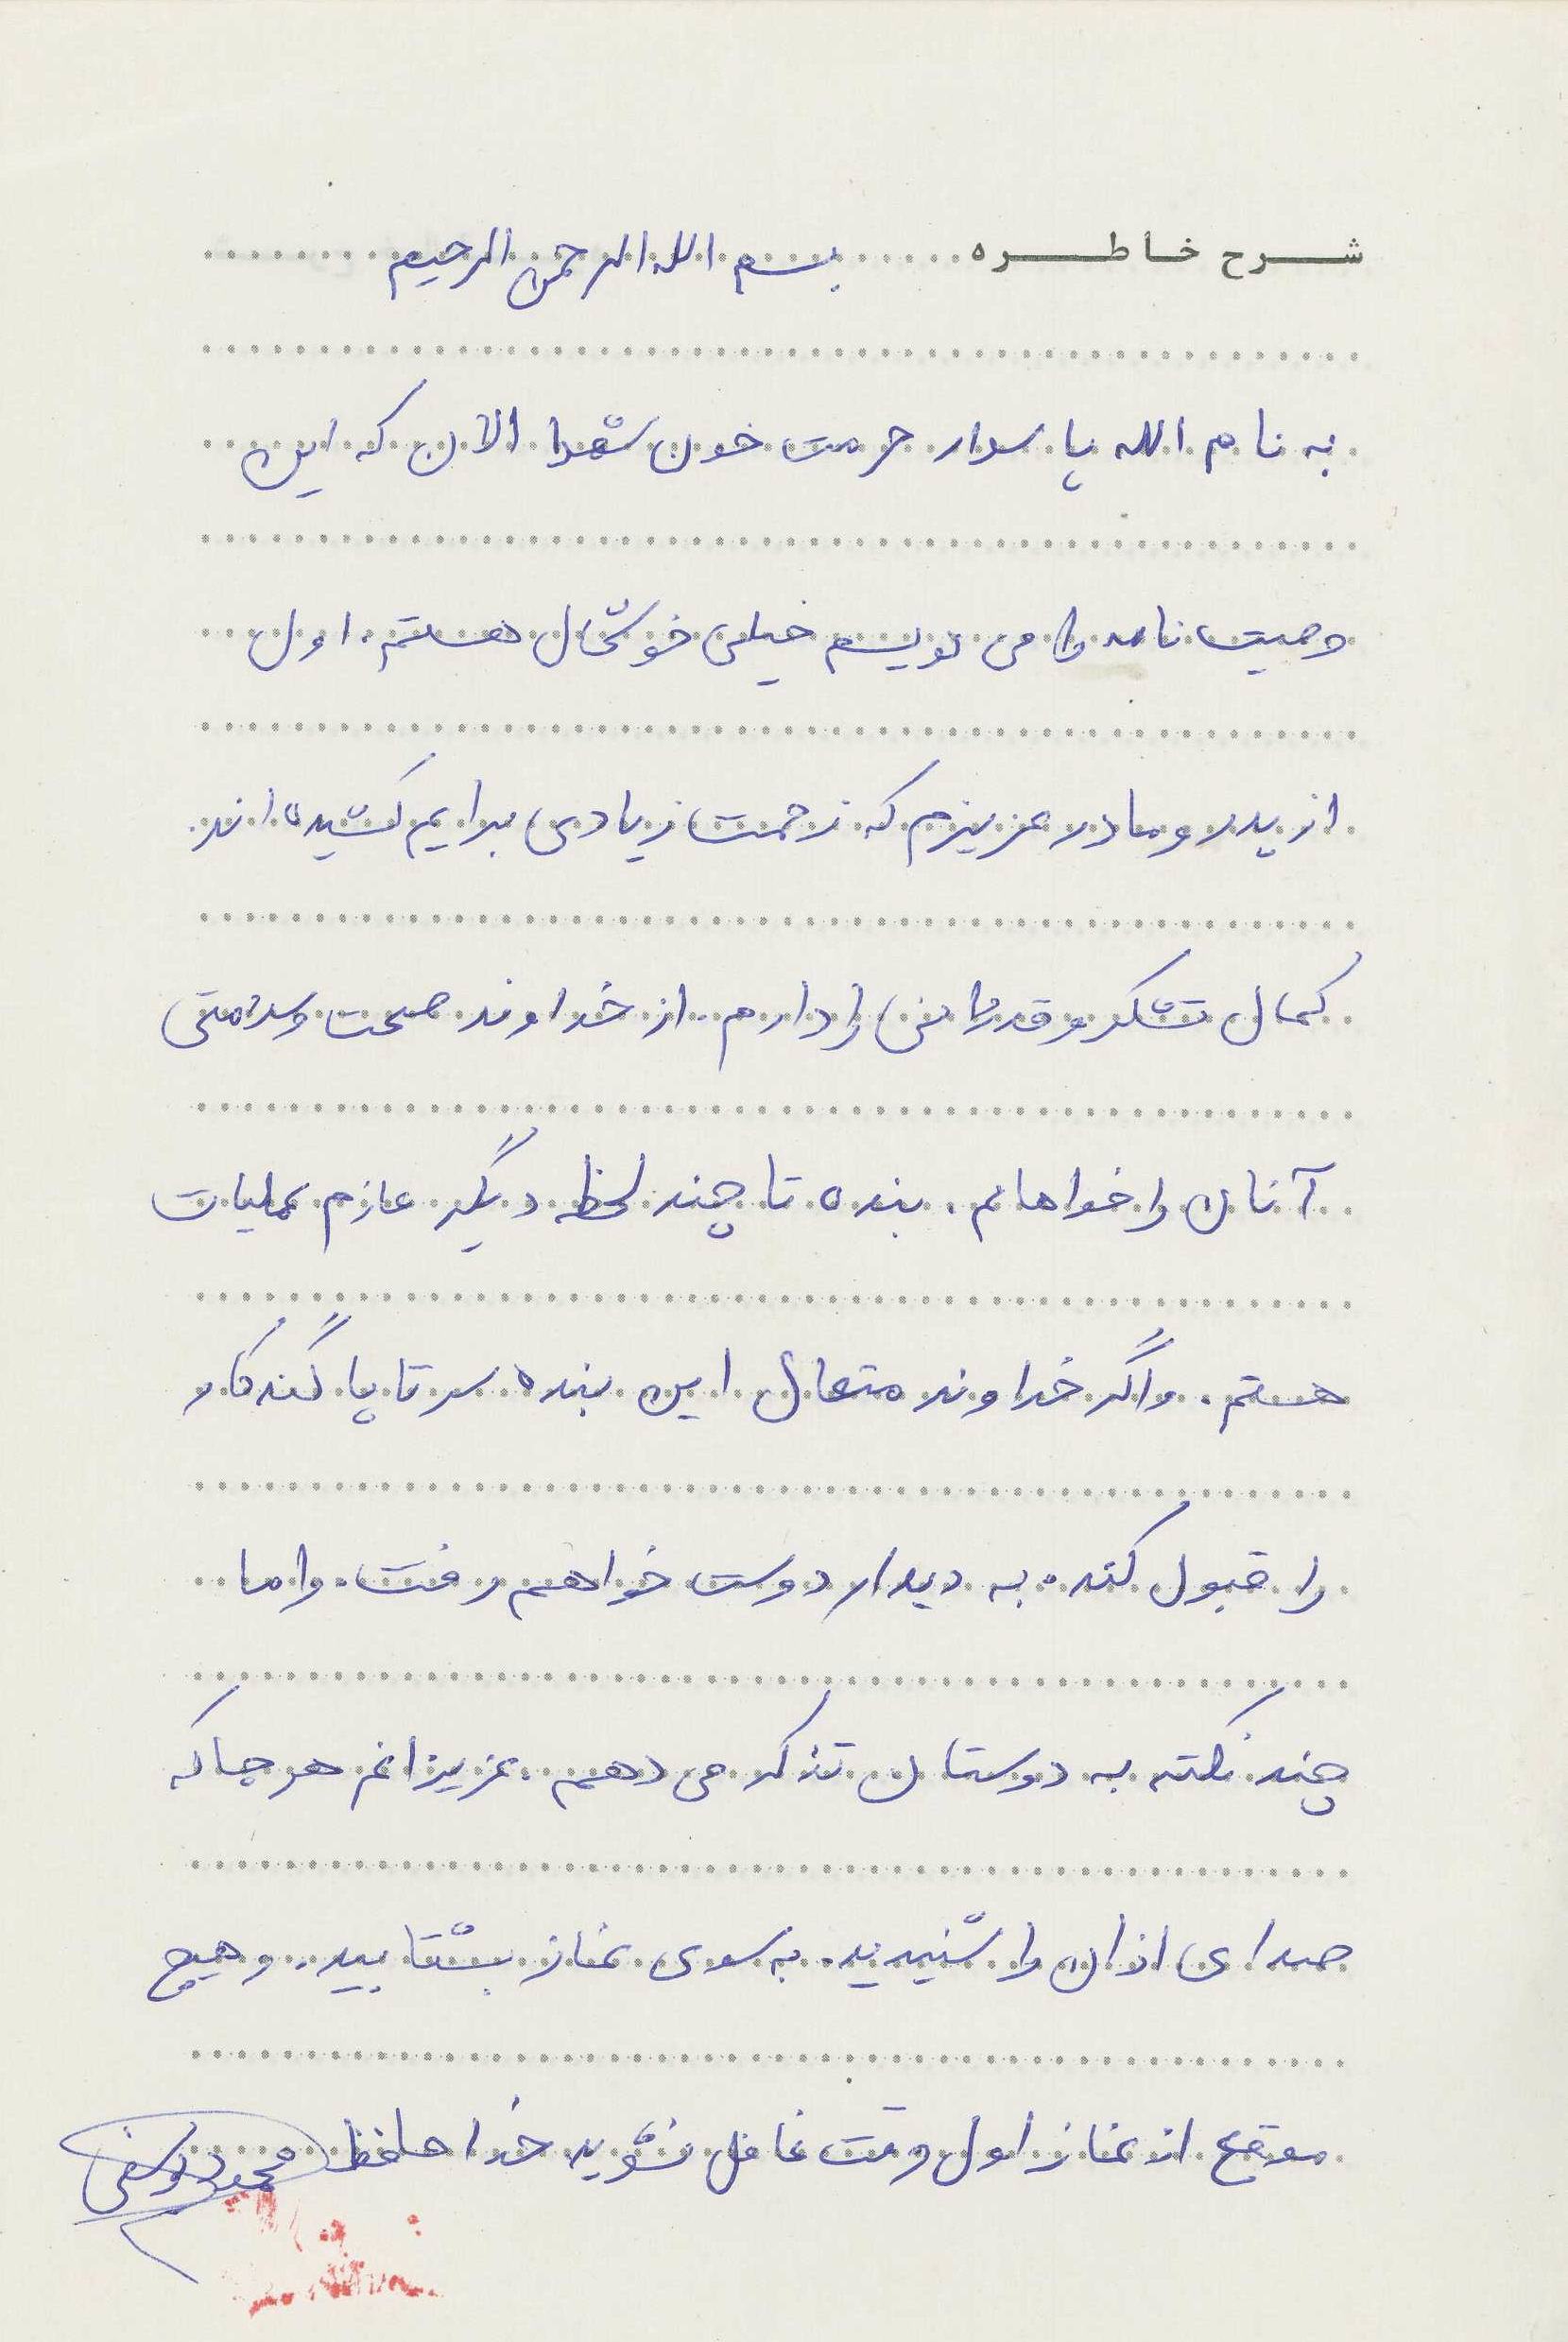 شرح خاطره بسم الله الرحمن الرحیم
به نام الله پاسدار حرمت خون شهدا الان که این
وصیت نامه را می نویسم خیلی خوشحال هستم. اول
از پدر و مادر عزیزم که زحمت زیادی برایم کشیده اند.
کمال تشکر و قدردانی را دارم. از خداوند صحت و سلامتی
آنان را خواهانم. بنده تا چند لحظه دیگر عازم عملیات
هستم. و اگر خداوند متعال این بنده سر تا پا گنهکار
را قبول کند. به دیدار دوست خواهم رفت. و اما
چند نکته به دوستان تذکر می دهم. عزیزانم هر جا که
صدای اذان را شنیدید. به سوی نماز بشتابید. و هیچ
موقع از نماز اول وقت غافل نشوید خدا حافظ محمود یوسفی